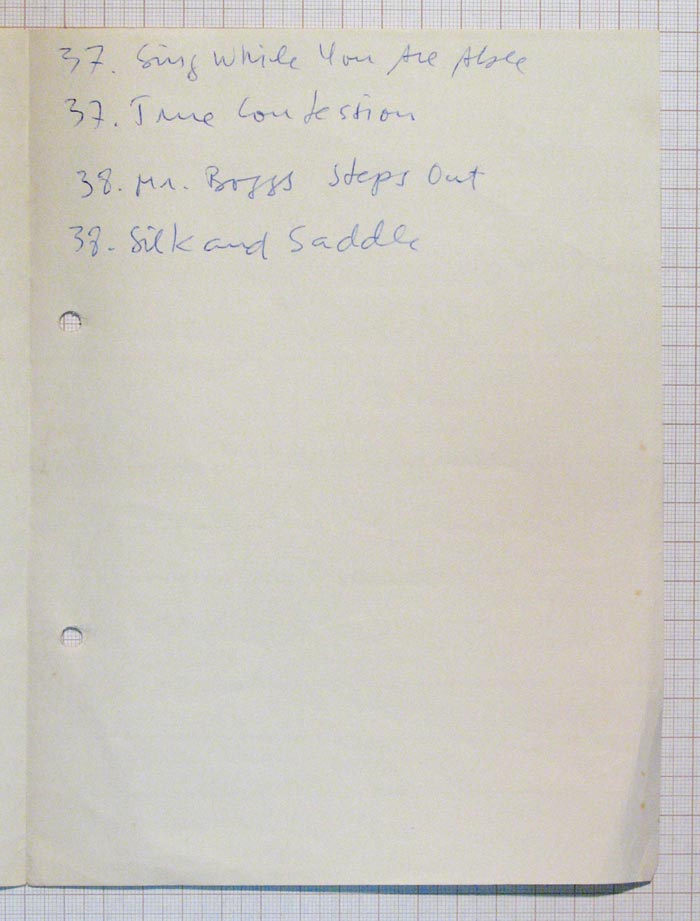 37. Sing While You Are Able
37. True Confession
38. Mr. Boggs Steps Out
38. Silk and Saddle